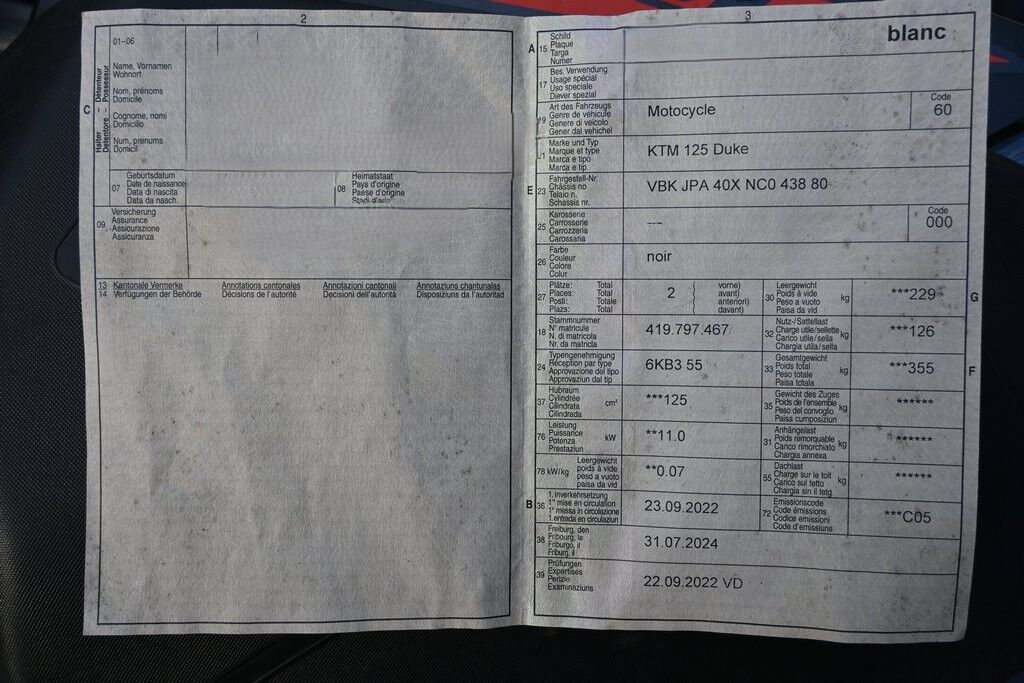 2
01–06
Name, Vornamen
Wohnort
Nom, prénoms
Domicile
Cognome, nomi
Domicilio
Num, prenums
Domicil
C
Halter – Détenteur
Detentore – Possessur
07
Geburtsdatum
Date de naissance
Data di nascita
Data da nasch.
08
Heimatstaat
Pays d'origine
Paese d'origine
09
Versicherung
Assurance
Assicurazione
Assicuranza
13 Kantonale Vermerke Annotations cantonales Annotazioni cantonali Annotaziuns chantunalas
14 Verfügungen der Behörde Décisions de l'autorité Decisioni dell'autorità Disposiziuns da l'autoritad
3
A 15
Schild
Plaque
Targa
Numer
blanc
17
Bes. Verwendung
Usage spécial
Uso speciale
Diever spezial
19
Art des Fahrzeugs
Genre de véhicule
Genere di veicolo
Gener dal vehichel
Motocycle
Code
60
Marke und Typ
Marque et type
Marca e tipo
Marca e tip
KTM 125 Duke
E 23
Fahrgestell-Nr.
Châssis no
Telaio n.
Schassis nr.
VBK JPA 40X NC0 438 80
25
Karosserie
Carrosserie
Carrozzeria
Carossaria
---
Code
000
26
Farbe
Couleur
Colore
Colur
noir
27
Plätze: Total
Places: Total
Posti: Totale
Plazs: Total
2
( vorne)
( avant)
( anteriori)
( davant)
30
Leergewicht
Poids à vide
Peso a vuoto
Paisa da vid
kg
***229
G
18
Stammnummer
N° matricule
N. di matricola
Nr. da matricla
419.797.467
32
Nutz-/Sattellast
Charge utile/sellette
Carico utile/sella
Chargia utila/sella
kg
***126
24
Typengenehmigung
Réception par type
Approvazione del tipo
Approvaziun dal tip
6KB3 55
33
Gesamtgewicht
Poids total
Peso totale
Paisa totala
kg
***355
F
37
Hubraum
Cylindrée
Cilindrata
Cilindrada
cm³
***125
35
Gewicht des Zuges
Poids de l'ensemble
Peso del convoglio
Paisa cumposiziun
kg
******
76
Leistung
Puissance
Potenza
Prestaziun
kW
**11.0
31
Anhängelast
Poids remorquable
Carico rimorchiato
Chargia annexa
kg
******
78 kW/kg
Leergewicht
poids à vide
peso a vuoto
paisa da vid
**0.07
55
Dachlast
Charge sur le toit
Carico sul tetto
Chargia sin il tetg
kg
******
B 36
1. Inverkehrsetzung
1re mise en circulation
1a messa in circolazione
1. entrada en circulaziun
23.09.2022
72
Emissionscode
Code émissions
Codice emissioni
Code d'emissiuns
***C05
38
Freiburg, den
Fribourg, le
Friburgo, il
Friburg, il
31.07.2024
39
Prüfungen
Expertises
Perizie
Examinaziuns
22.09.2022 VD